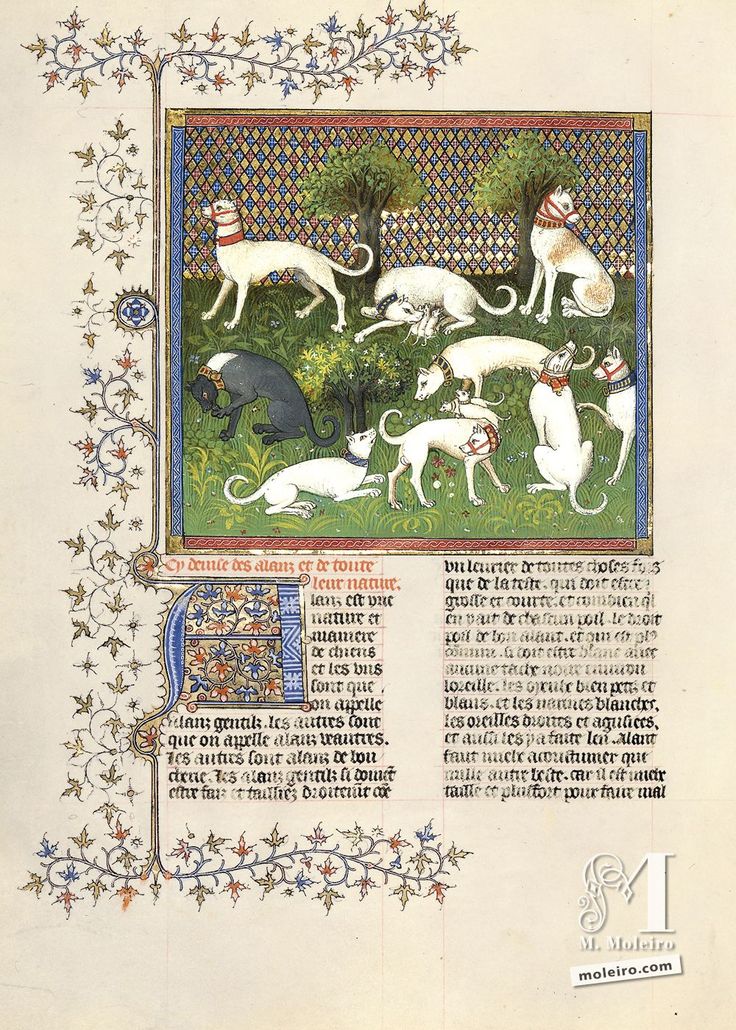 Cy deuise des alanz et de toute
leur nature.
Alanz est vne
nature et
maniere
de chiens
et les vns
sont que
on appelle
alanz gentilz. les autres sont
que on appelle alanz veautres.
Les autres sont alanz de bou
cherie. Les alanz gentilz si doiuent
estre faiz et tailliez droitement coe
vn leurier de toutes choses fors
que de la teste. qui doit estre
grosse et courte. et combien quil
en yait de chascun poil. le droit
poil de bon alant. et qui est plus
commun. si doit estre blanc auec
aucune tache noire enuiron
loreille. les yeulx bien petis et
blans. et les narines blanches.
les oreilles droites et aguisees.
et aussi les ya faite len. Alant
faut mielz acoustumer que
nulle autre beste. car il est mielx
taillie et plus fort pour faire mal
M
M. Moleiro
moleiro.com